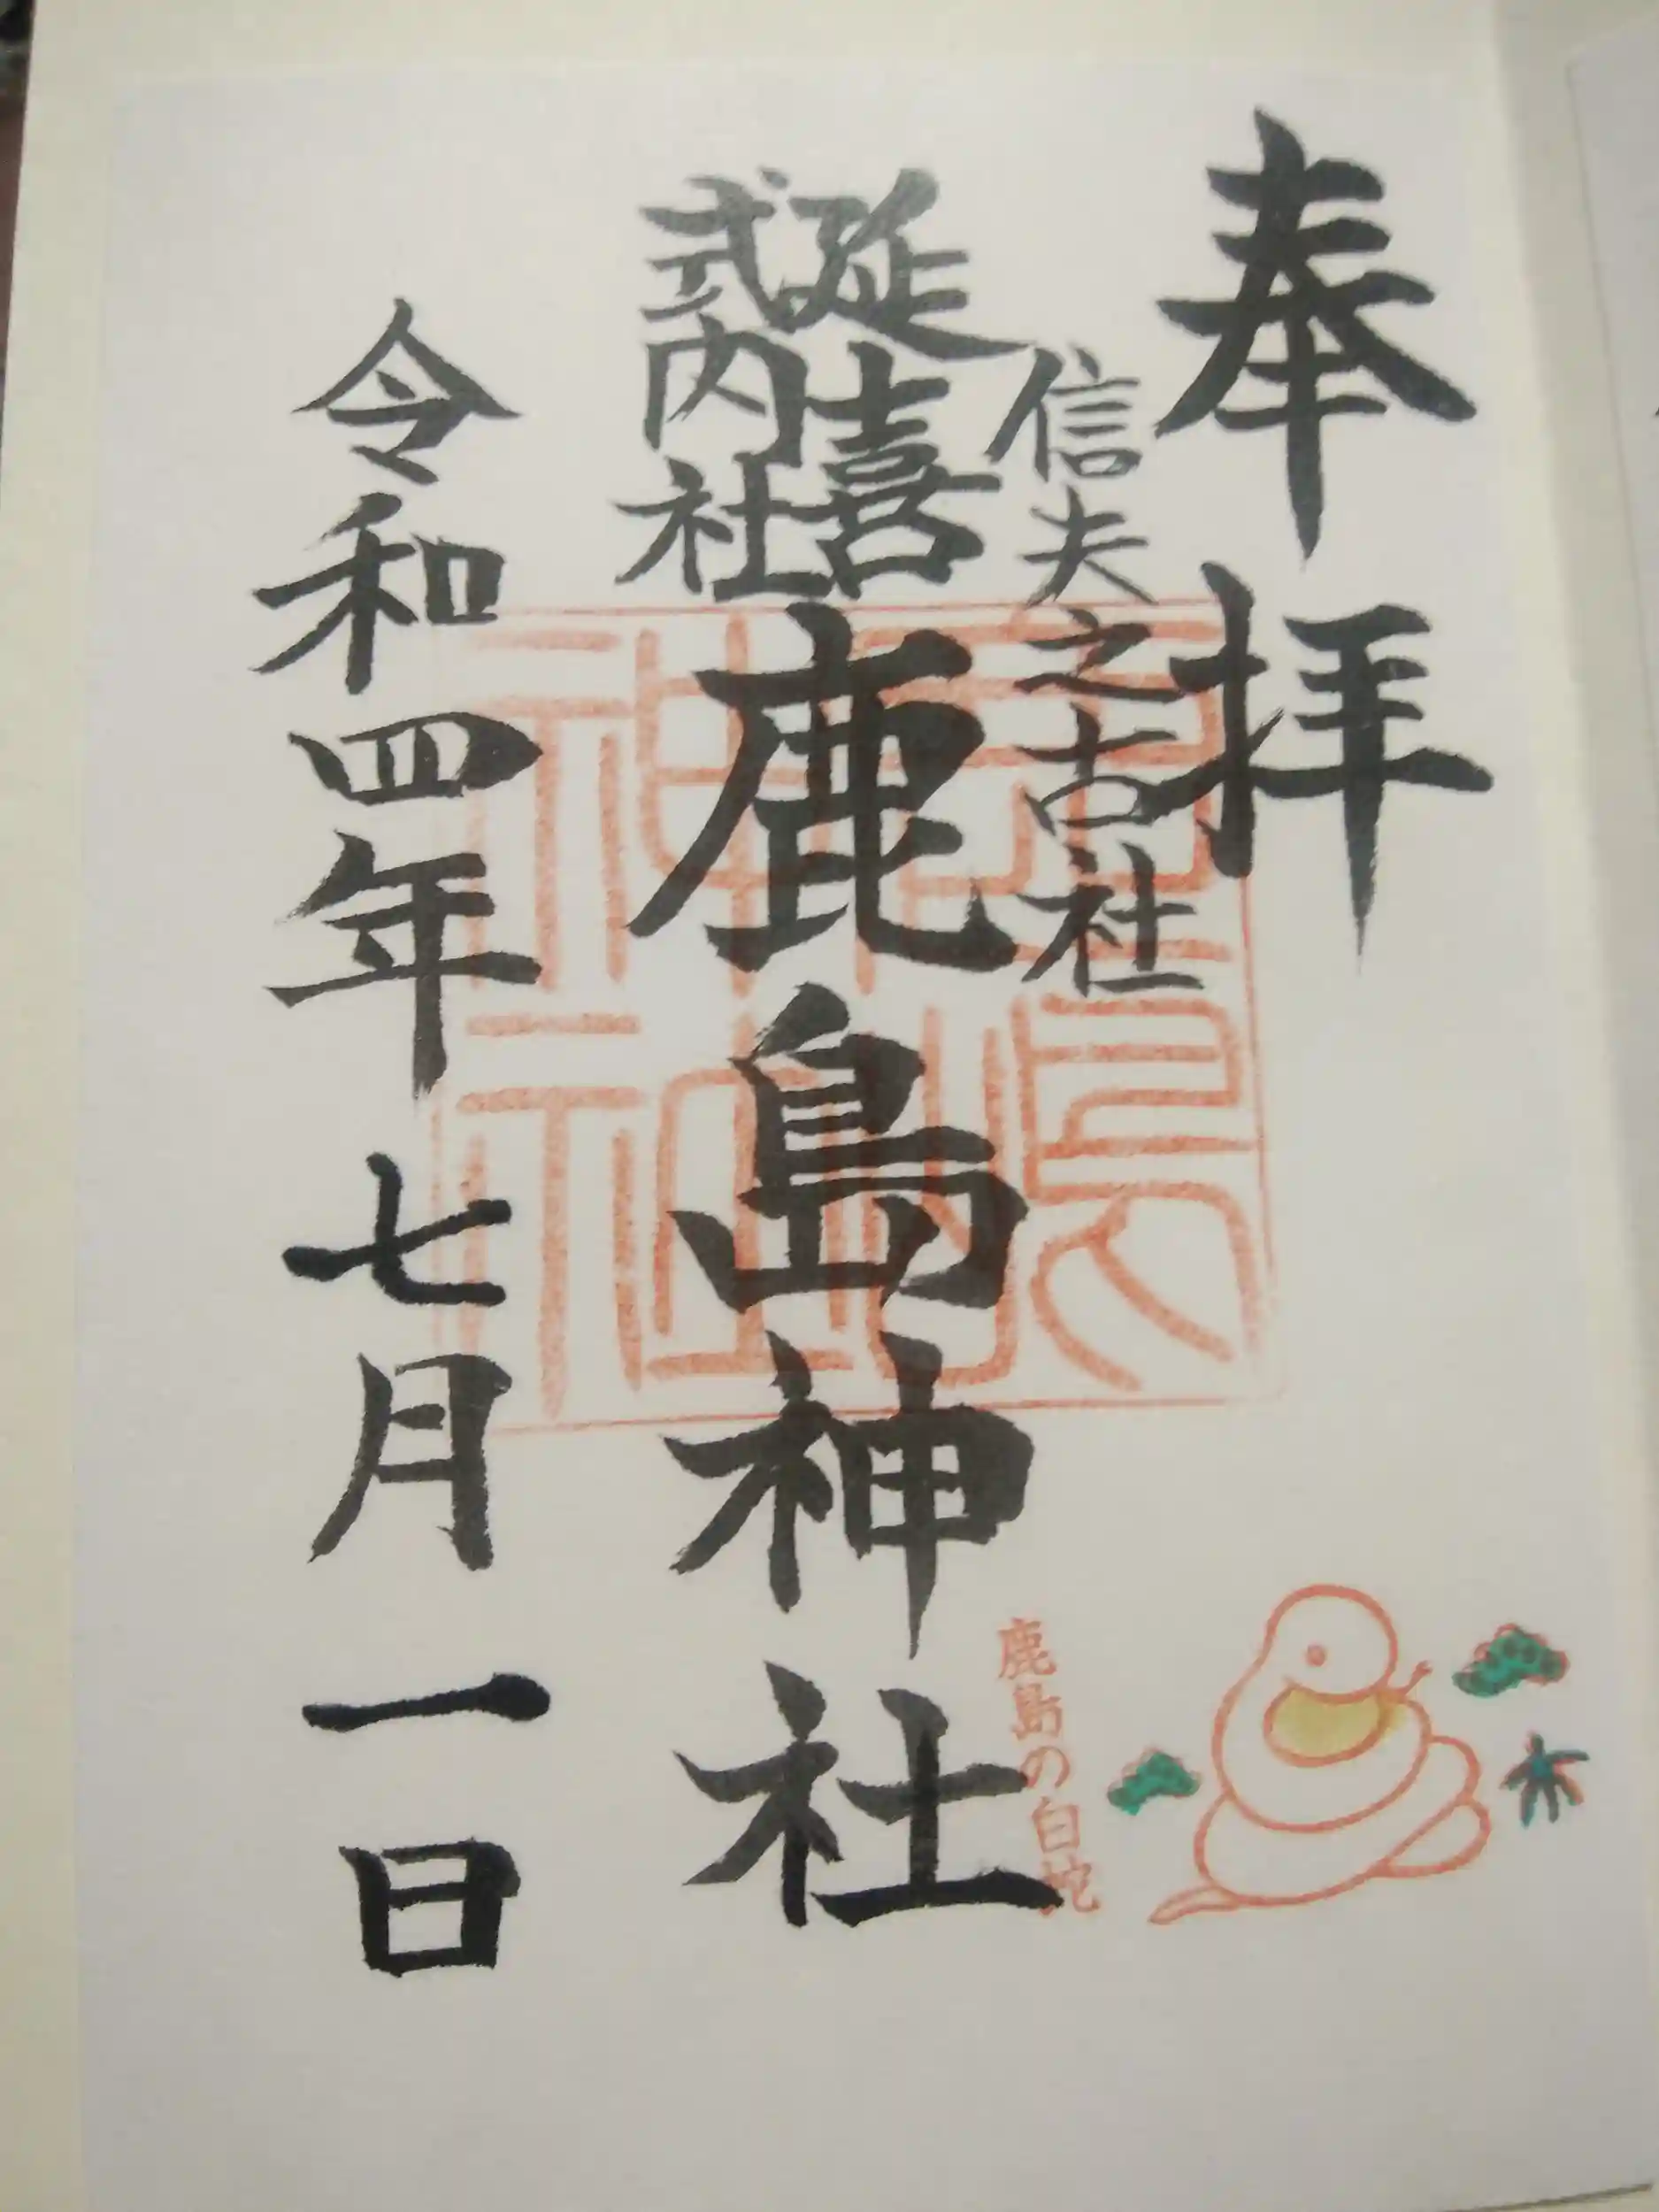 奉拝
信夫之古社
延喜
式内社
鹿島神社
令和四年七月一日
鹿島の白蛇
鹿島
神社